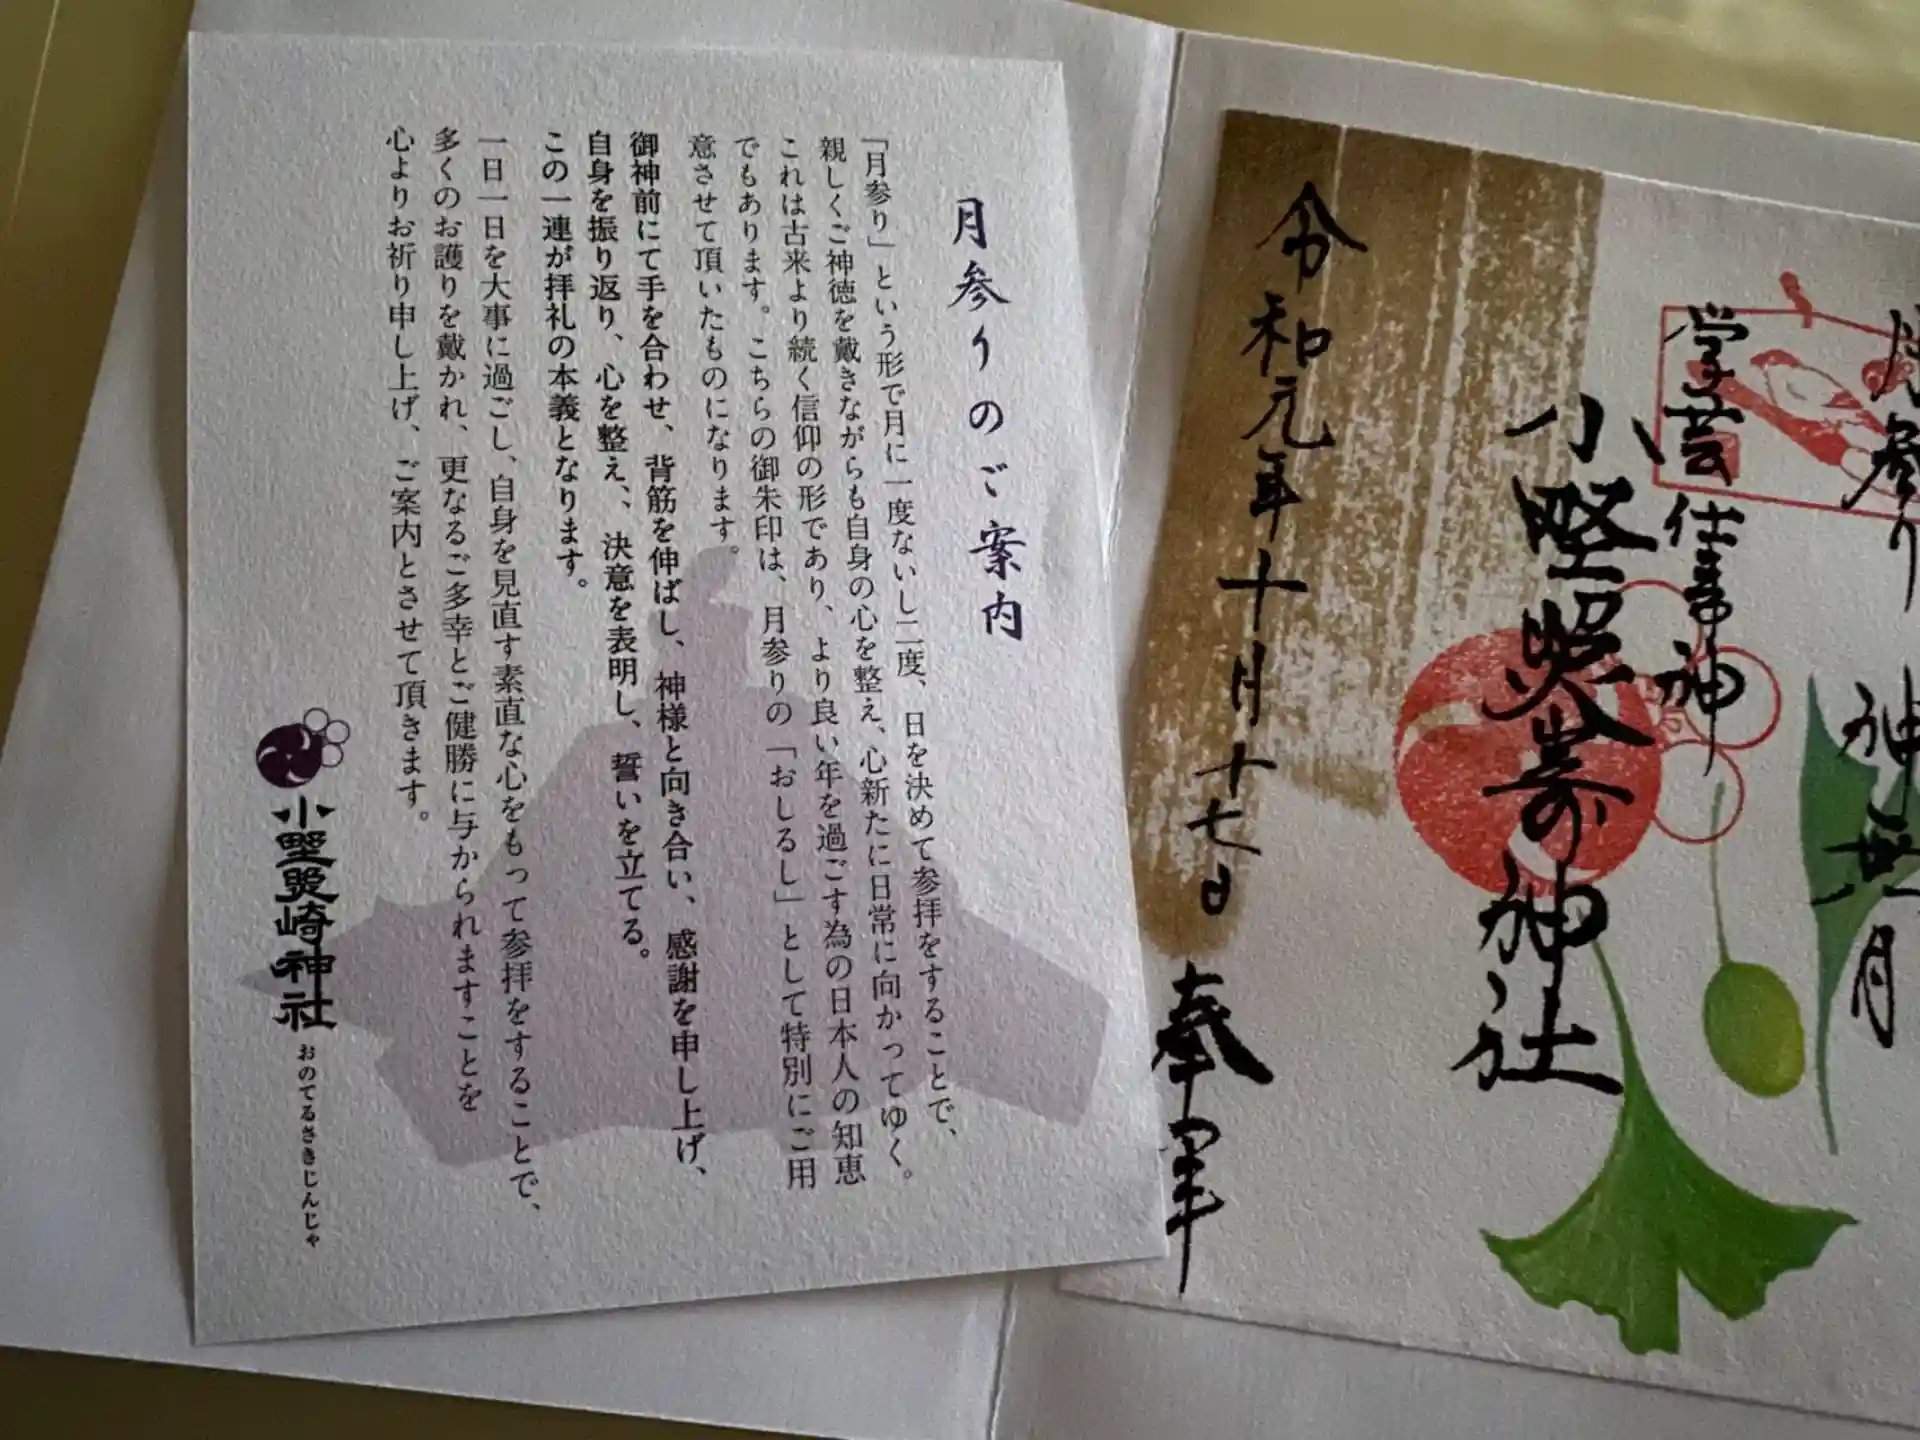 月参りのご案内
「月参り」という形で月に一度ないし二度、日を決めて参拝をすることで、
親しくご神徳を戴きながらも自身の心を整え、心新たに日常に向かってゆく。
これは古来より続く信仰の形であり、より良い年を過ごす為の日本人の知恵
でもあります。こちらの御朱印は、月参りの「おしるし」として特別にご用
意させて頂いたものになります。
御神前にて手を合わせ、背筋を伸ばし、神様と向き合い、感謝を申し上げ、
自身を振り返り、心を整え、決意を表明し、誓いを立てる。
この一連が拝礼の本義となります。
一日一日を大事に過ごし、自身を見直す素直な心をもって参拝をすることで、
多くのお護りを戴かれ、更なるご多幸とご健勝に与かられますことを
心よりお祈り申し上げ、ご案内とさせて頂きます。
小野照崎神社
おのてるさきじんじゃ
月参り 神無月
学芸 仕事神
小野照崎神社
令和元年十月十七日
奉拝